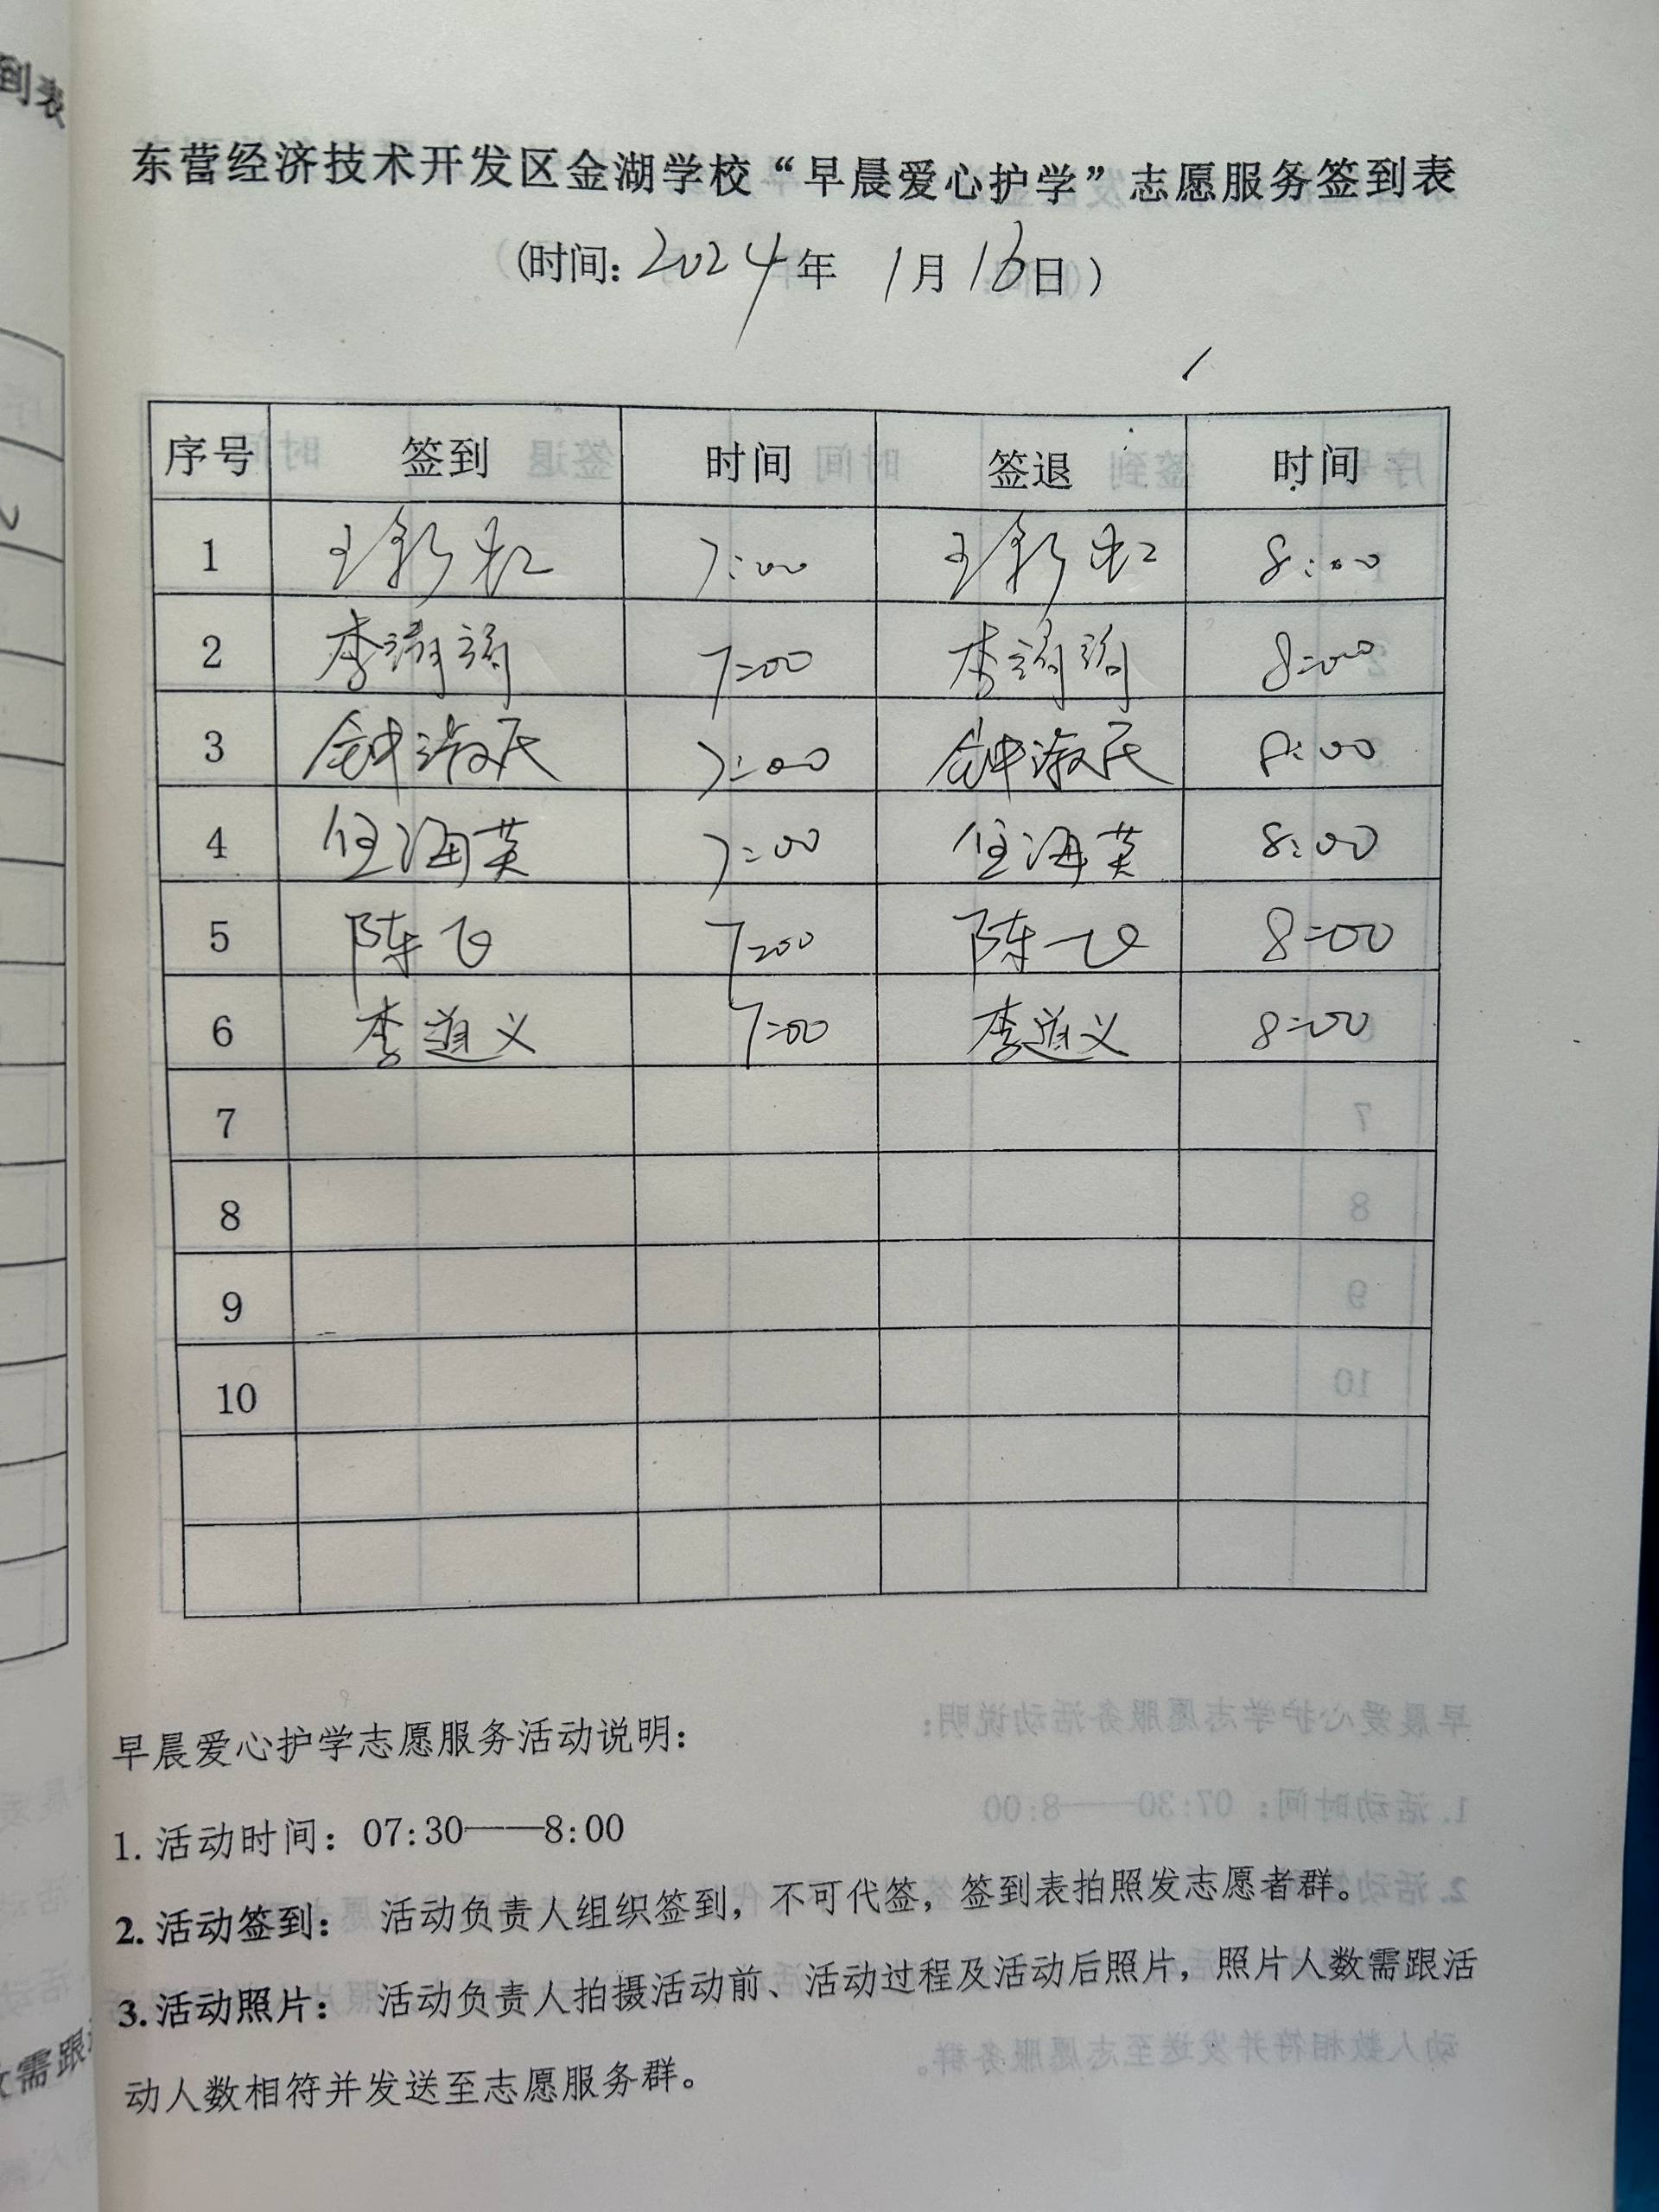 东营经济技术开发区金湖学校“早晨爱心护学”志愿服务签到表
(时间: 2024年 1月16日)
序号 签到 时间 签退 时间
1 王彩虹 7:00 王彩虹 8:00
2 李 7:00 李 8:00
3 钟淑民 7:00 钟淑民 8:00
4 任海英 7:00 任海英 8:00
5 陈飞 7:00 陈飞 8:00
6 李道义 7:00 李道义 8:00
7
8
9
10
早晨爱心护学志愿服务活动说明:
1. 活动时间: 07:30——8:00
2. 活动签到: 活动负责人组织签到, 不可代签, 签到表拍照发志愿者群。
3. 活动照片: 活动负责人拍摄活动前、活动过程及活动后照片, 照片人数需跟活
动人数相符并发送至志愿服务群。